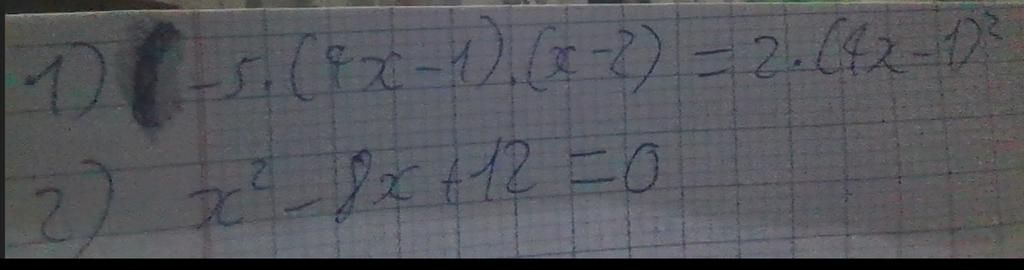 1) -5·(4x-1)·(x-2) = 2·(4x-1)²
2) x² - 8x + 12 = 0